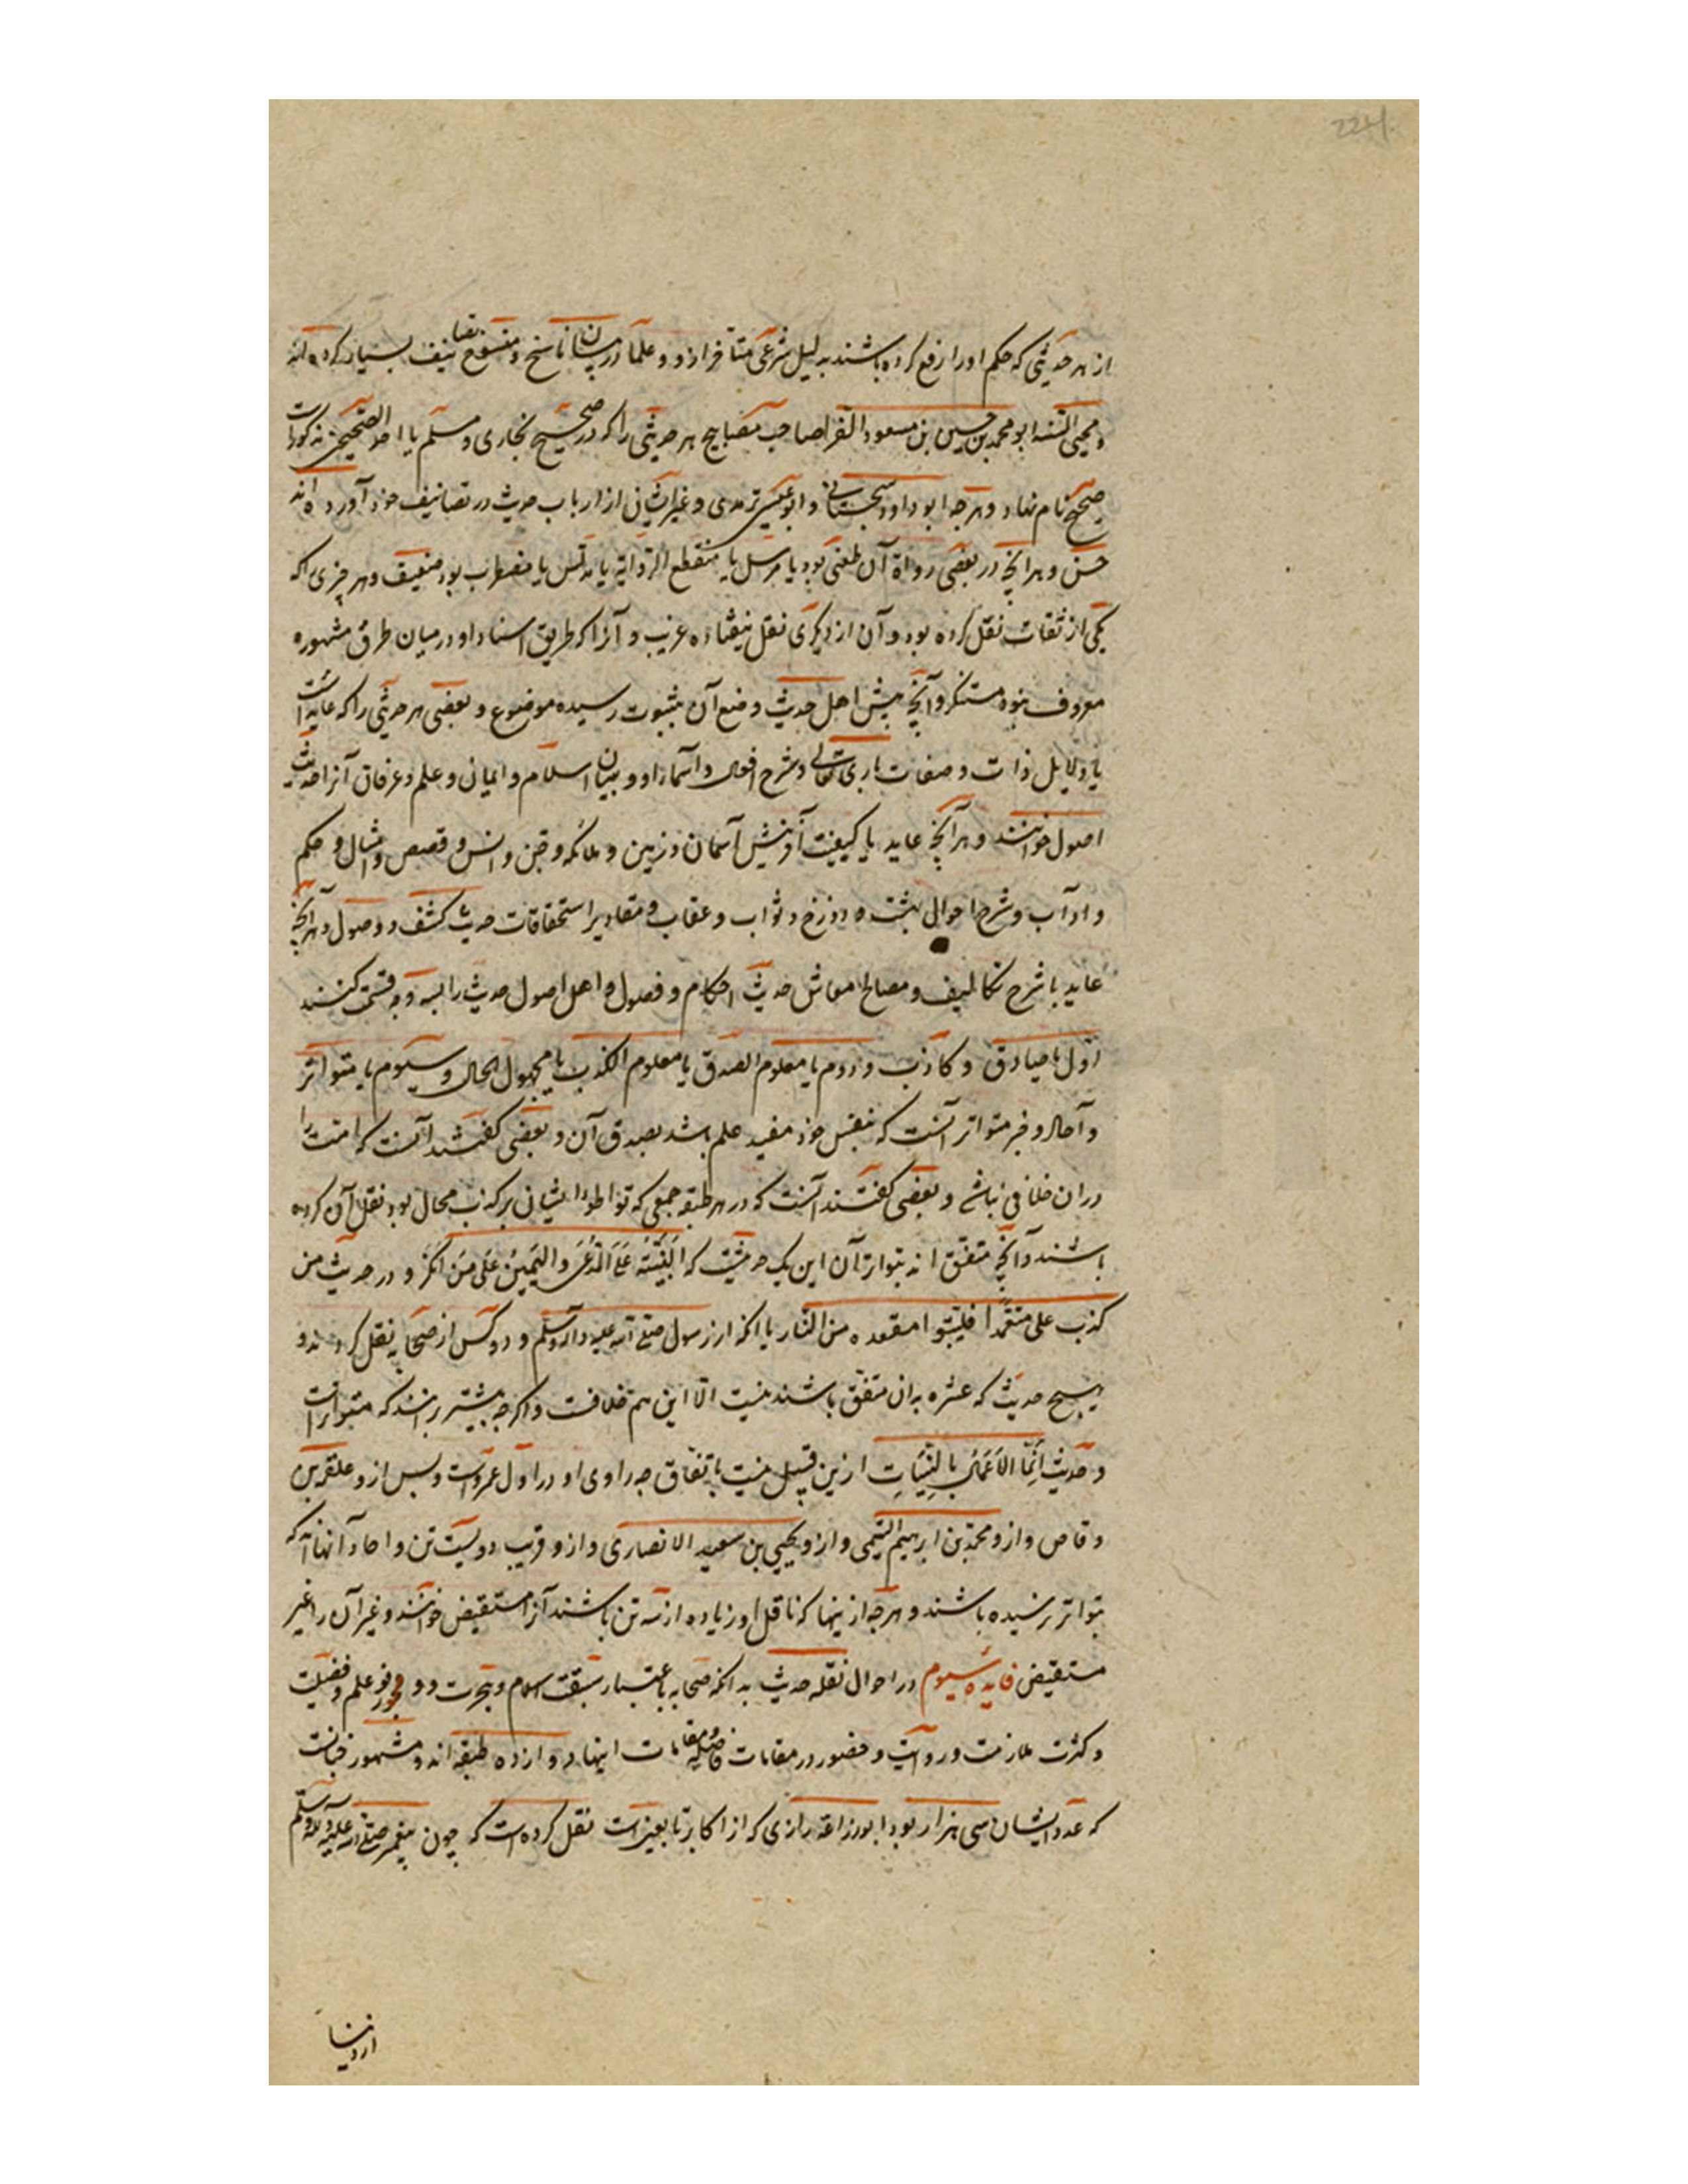 224
از هر حدیثی که حکم او را رفع کرده باشند بدلیل شرعی متأخر ازو و علما در بیان ناسخ و منسوخ تصانیف بسیار کرده‌اند
و محیی السنه ابو محمد بن حسین بن مسعود الفرا صاحب مصابیح هر حدیثی را که در صحیح بخاری و مسلم یا احد الصحیحین مذکورست
صحیح نام نهاد و هرچه ابو داود سجستانی و ابو عیسی ترمدی و غیر ایشان از ارباب حدیث در تصانیف خود آورده‌اند
حسن و هرانچه در بعضی رواة آن طعنی بود یا مرسل یا منقطع الروایة یا مدلس یا مضطرب بود ضعیف و هر چیزی که
یکی از ثقات نقل کرده بود و آن از دیگری نقل نیفتاده غریب و آنرا که طریق اسناد او در میان طرق مشهوره
معروف نبود مستنکر و آنچه پیش اهل حدیث وضع آن بثبوت رسیده موضوع و بعضی هر حدیثی را که عاید است
یا دلایل ذات و صفات باری تعالی و شرح افعال و اسماء او و بیان اسلام و ایمان و علم و عرفان آنرا حدیث
اصول خوانند و هرآنچه عاید با کیفیت آفرینش آسمان و زمین و ملائکه و جن و انس و قصص و امثال و حکم
و اداب و شرح احوال بهشت و دوزخ و ثواب و عقاب و مقادیر استحقاقات حدیث کشف و وصول و هرآنچه
عاید با شرح تکالیف و مصالح معاش حدیث احکام و فصول و اهل اصول حدیث را بسه وجه قسمت کنند
اول با صادق و کاذب و دوم با معلوم الصدق یا معلوم الکذب یا مجهول الحال و سیوم با متواتر
و آحاد و خبر متواتر آنست که بنفس خود مفید علم باشد بصدق آن و بعضی گفتند آنست که امت را
دران خلافی نباشد و بعضی گفتند آنست که در هر طبقه جمعی که تواطؤ ایشان بر کذب محال بود نقل آن کرده
باشند و آنچه متفق اند بتواتر آن این یک حدیثیت که اَلبَیِّنَةُ عَلَی المُدَّعی وَالیَمِینُ عَلی مَن اَنکَرَ و در حدیث من
کذب علی متعمدا فلیتبوا مقعده من النار با انکه از رسول صلی الله علیه وآله وسلم و دو کس از صحابه نقل کرده‌اند و
هیچ حدیث که عشره بدان متفق باشند نیست الا این هم خلافست و اگرچه بیشتر برانند که متواترست
و حدیث اِنَّمَا الاَعمَالُ بِالنِّیَّاتِ ازین قبیل نیست باتفاق چه راوی او در اول عمروست و پس ازو علقمه بن
وقاص و ازو محمد بن ابرهیم التیمی و ازو یحیی بن سعید الانصاری و ازو قریب دویست تن و احاد آنهااند که
بتواتر نرسیده باشند و هرچه ازینها که ناقل او زیاده از سه تن باشند آنرا مستفیض خوانند و غیر آن را غیر
مستفیض فایده سیوم در احوال نقله حدیث بدانکه صحابه باعتبار سبقت اسلام و هجرت و وفور علم و فضیلت
و کثرت ملازمت و روایت و حضور در مقامات فاضله مقامات اینها دوازده طبقه اند و مشهور چنانست
که عدد ایشان سی هزار بود ابو زراعه رازی که از اکابر تابعینست نقل کرده است که چون پیغمبر صلی الله علیه وآله وسلم
از دنیا